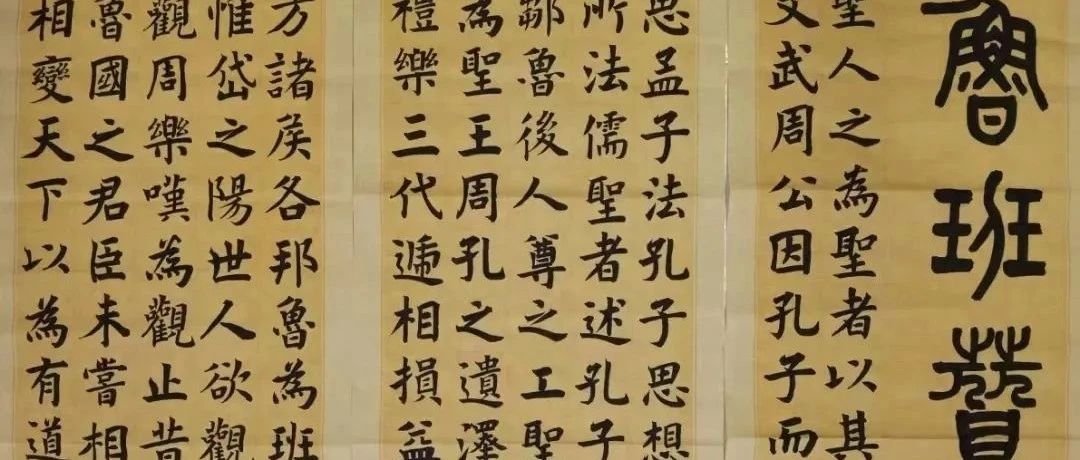 魯班贊
聖人之為聖者以其
文武周公因孔子而
思孟子法孔子思想
所法儒聖者述孔子
鄒魯後人尊之工聖
為聖王周孔之遺澤
禮樂三代遞相損益
方諸侯各邦魯為班
惟岱之陽世人欲觀
觀周樂嘆為觀止昔
魯國之君臣未嘗相
相變天下以為有道